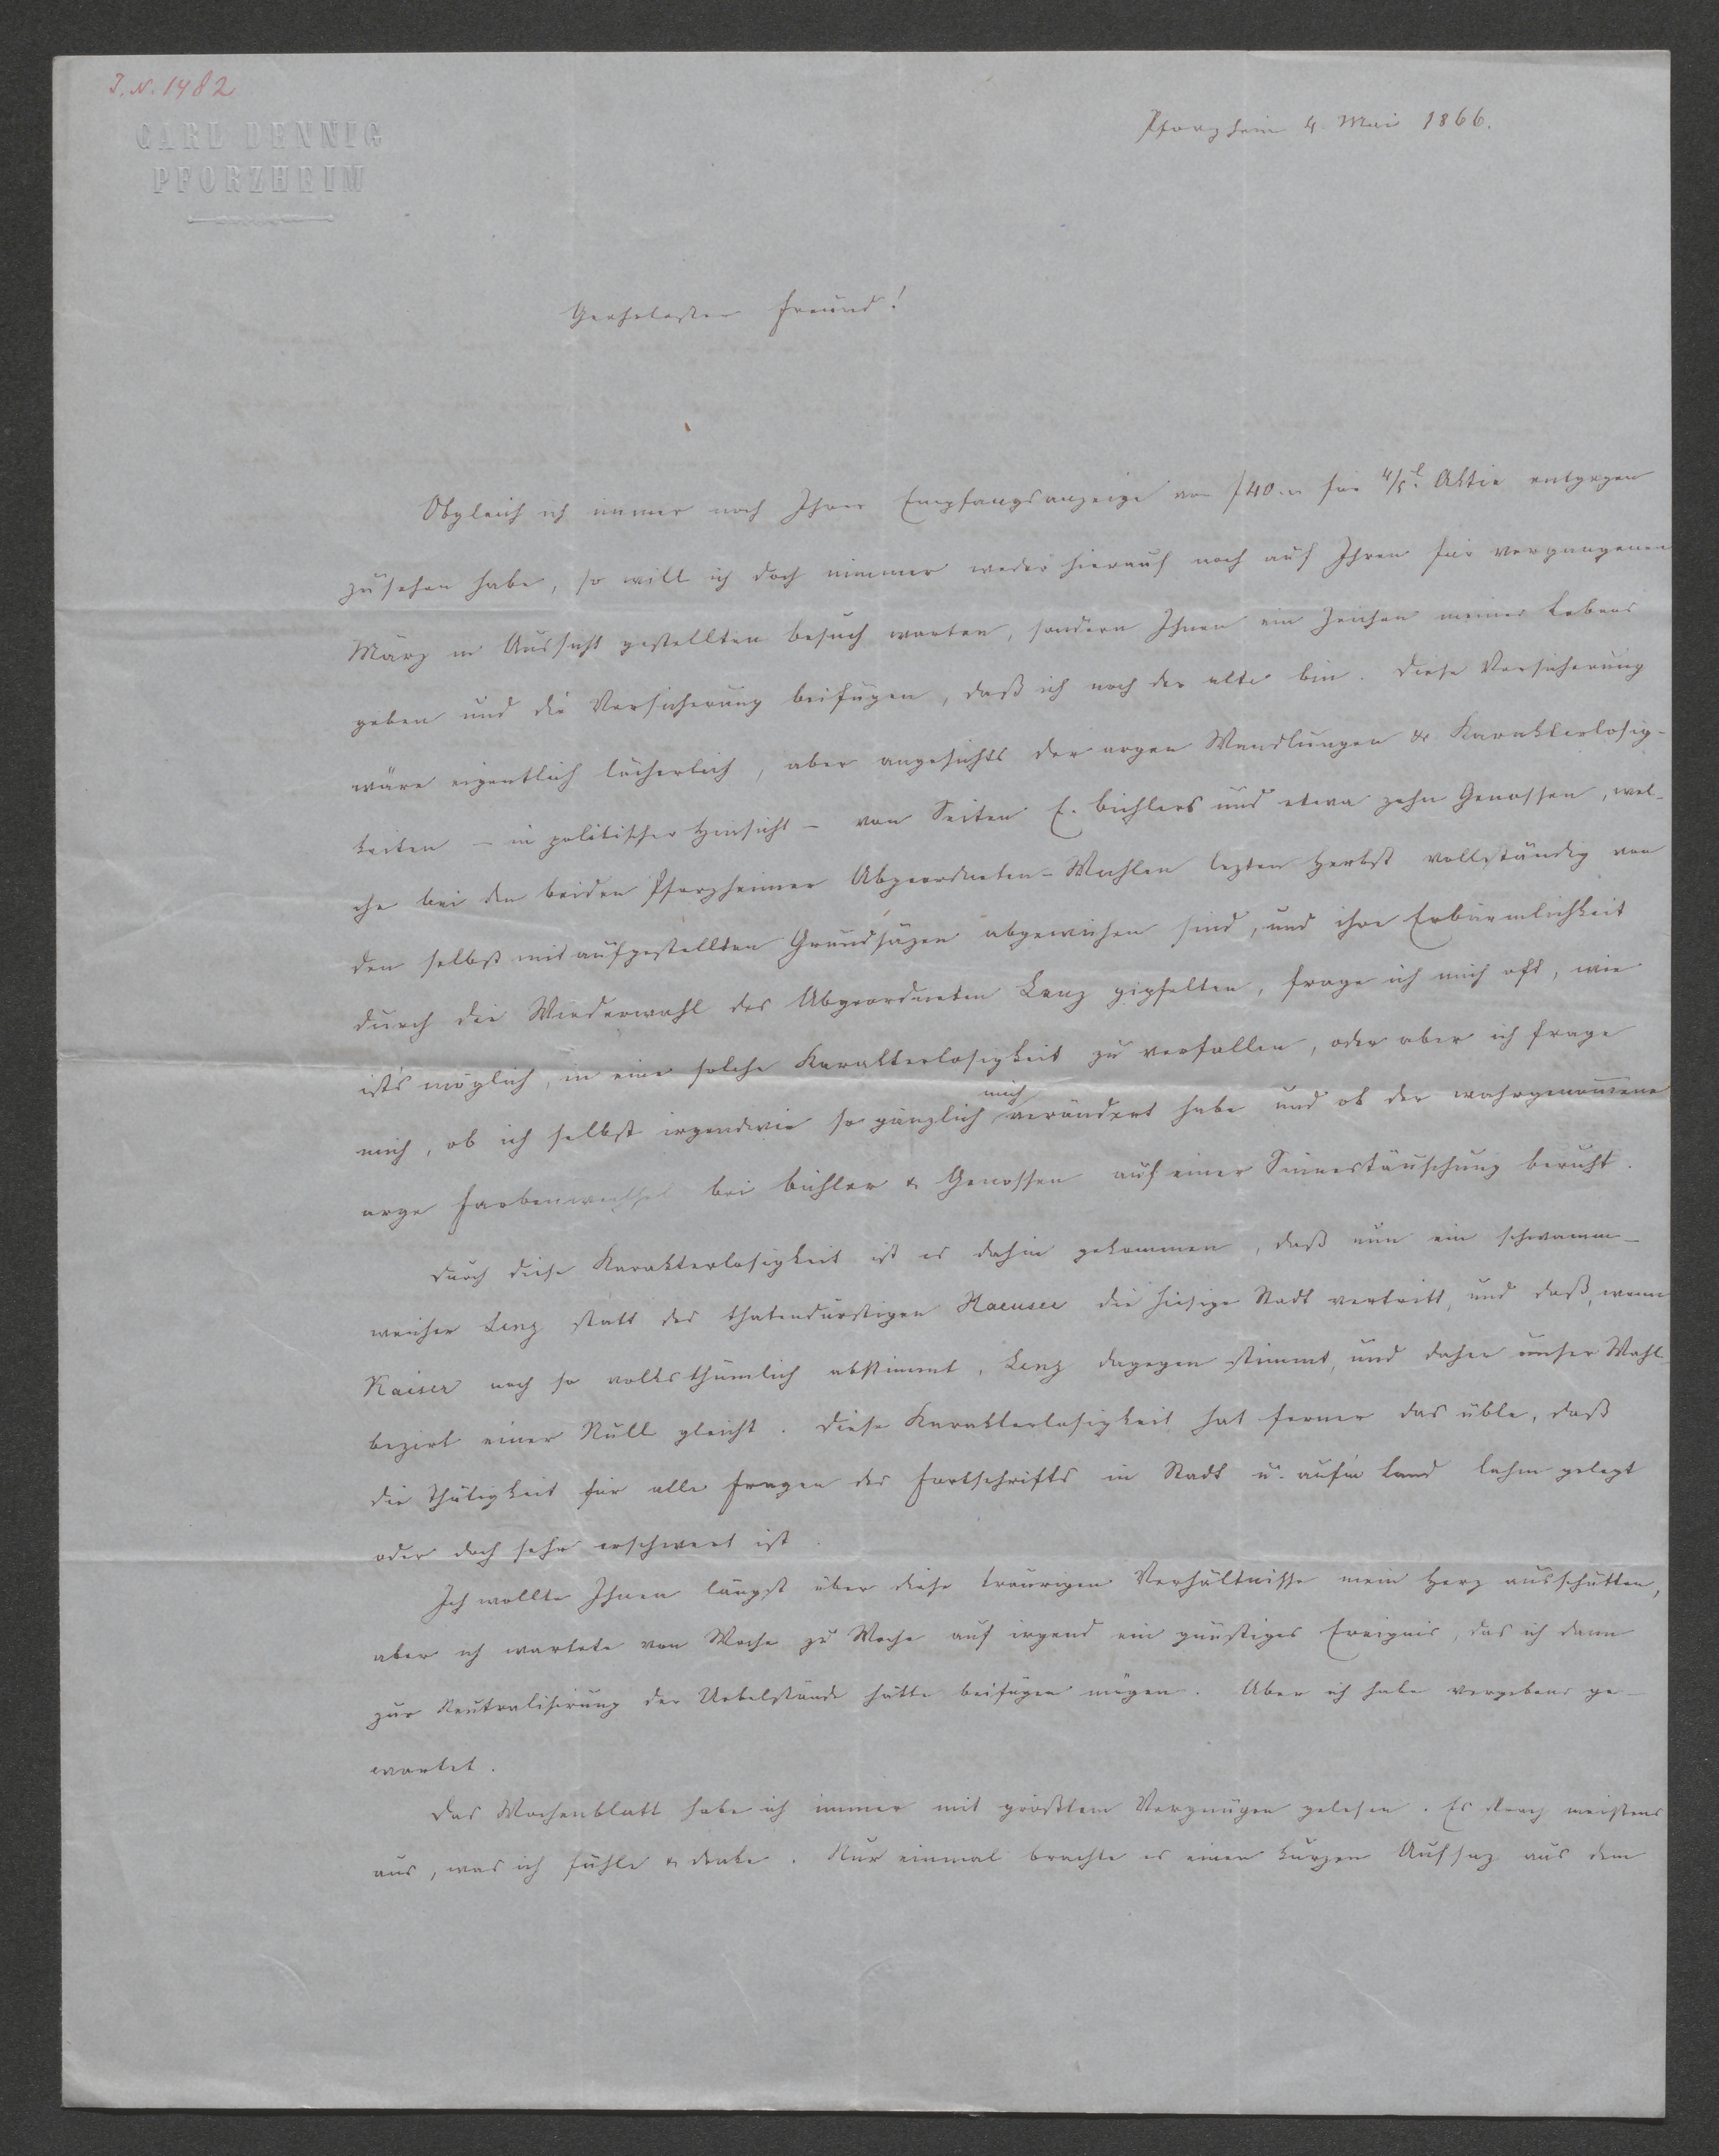 J. N. 1482
CARL DENNIG
PFORZHEIM
Pforzheim 4. Mai 1866.
Geehrtester Freund!
Obgleich ich immer noch Ihrer Empfangsanzeige von f 40.– für 4/5tl Aktie entgegen
zusehen habe, so will ich doch nimmer weder hierauf noch auf Ihren für vergangenen
März in Aussicht gestellten Besuch warten, sondern Ihnen ein Zeichen meines Lebens
geben und die Versicherung beifügen, daß ich noch der alte bin. Diese Versicherung
wäre eigentlich lächerlich, aber angesichts der argen Wandlungen & Karakterlosig-
keiten – in politischer Hinsicht – von Seiten E. Bichlers und etwa zehn Genossen, wel-
che bei den beiden Pforzheimer Abgeordneten-Wahlen lezten Herbst vollständig von
den selbst mit aufgestellten Grundsäzen abgewichen sind, und ihre Erbärmlichkeit
durch die Wiederwahl des Abgeordneten Lenz gipfelten, frage ich mich oft, wie
ists möglich, in eine solche Karakterlosigkeit zu verfallen, oder aber ich frage
mich, ob ich selbst irgendwie so gänzlich mich verändert habe und ob der wahrgenomene
arge Farbenwechsel bei Bichler & Genossen auf einer Sinnestäuschung beruht.
Durch diese Karakterlosigkeit ist es dahin gekommen, daß nun ein schwamm-
weicher Lenz statt des thatendurstigen Haeusee die hiesige Stadt vertritt, und daß, wenn
Kaiser noch so volksthümlich abstimmt, Lenz dagegen stimmt, und daher unser Wahl-
bezirk einer Null gleicht. Diese Karakterlosigkeit hat ferner das üble, daß
die Thätigkeit für alle Fragen des Fortschritts in Stadt u. auf'm Land lahm gelegt
oder doch sehr erschwert ist.
Ich wollte Ihnen längst über diese traurigen Verhältnisse mein Herz ausschütten,
aber ich wartete von Woche zu Woche auf irgend ein günstiges Ereignis, das ich dann
zur Neutralisirung der Uebelstände hätte beifügen mögen. Aber ich habe vergebens ge-
wartet.
Das Wochenblatt habe ich immer mit größtem Vergnügen gelesen. Es sprach meistens
aus, was ich fühle & denke. Nur einmal brachte es einen kurzen Aufsaz aus dem